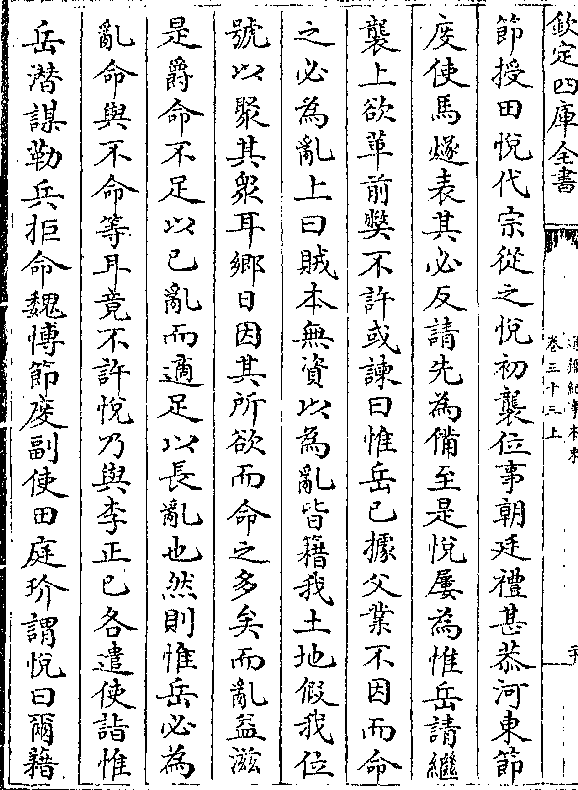 欽定四庫全書
通鑑紀事本末
卷三十三上
節授田悅代宗從之悅初襲位事朝廷禮甚恭河東節
度使馬燧表其必反請先為備至是悅屢為惟岳請繼
襲上欲革前弊不許或諫曰惟岳已據父業不因而命
之必為亂上曰賊本無資以為亂皆籍我土地假我位
號以聚其衆耳鄉日因其所欲而命之多矣而亂益滋
是爵命不足以已亂而適足以長亂也然則惟岳必為
亂命與不命等耳竟不許悅乃與李正已各遣使詣惟
岳潛謀勒兵拒命魏博節度副使田庭玠謂悅曰爾籍